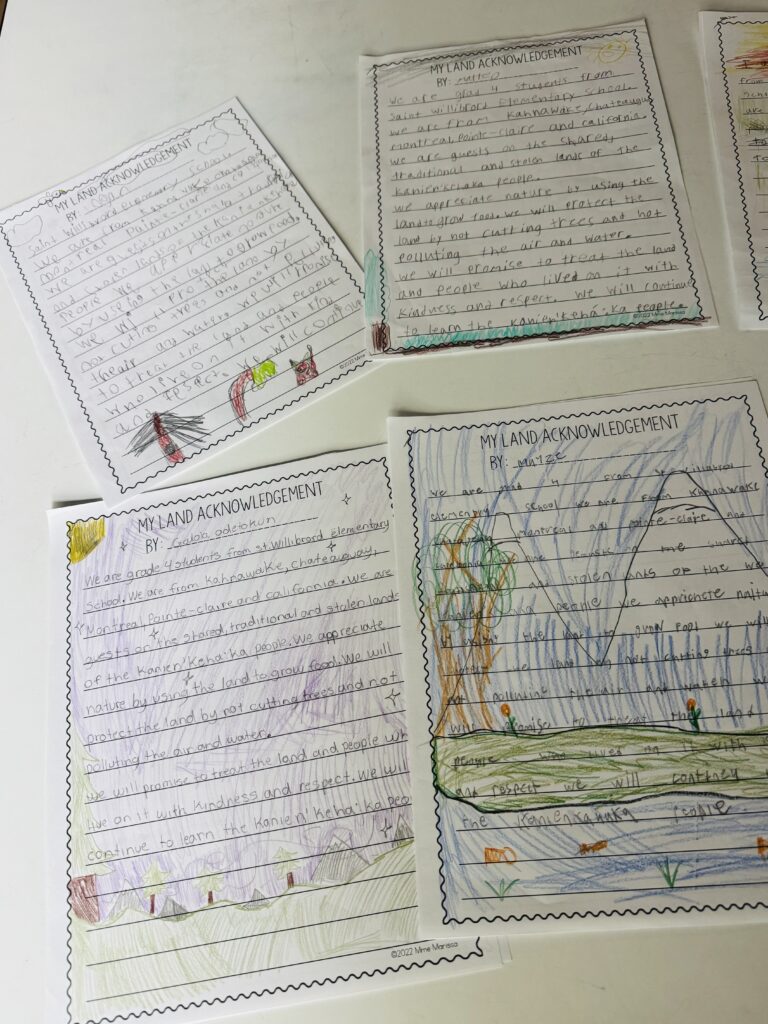 MY LAND ACKNOWLEDGEMENT
BY:
Saint Willibrord Elementary School
We are from
Montreal Pointe-claire and
We are guests on the
and stolen lands of the
People We appreciate nature
by using the land to grow food.
We will protect the land by
not cutting trees and not polluting
the air and water. We will promise
to treat the land and people
who live on it with
and respect. We will continue
©2022 Mme Marissa
MY LAND ACKNOWLEDGEMENT
BY: Matteo
We are grad 4 students from
Saint willibrord Elementary School.
we are from Kahnawake, chateauguay
montreal, Pointe-claire and california.
we are guests on the shared,
traditional and stolen lands of The
Kanien'kehaka people.
we appreciate nature by using the
land to grow food. we will protect the
land by not cutting trees and not
polluting the air and water.
we will promise to treat the land
and people who lived on it with
kindness and respect. we will continue
to learn the Kanien'kehá:ka people.
©2022 Mme Marissa
from
MY LAND ACKNOWLEDGEMENT
BY: odetokun
We are grade 4 students from st. Willibrord elementary
School. We are from Kahnawake, chateauguay,
Montreal, Pointe-claire and california. We are
guests on the shared, traditional and stolen lands
of the Kanien'Keha:ka people. We appreciate
nature by using the land to grow food. We will
protect the land by not cutting trees and not
polluting the air and water.
we will promise to treat the land and people wh
live on it with kindness and respect. We will
continue to learn the Kanien'Keha:ka peo
©2022 Mme Marissa
MY LAND ACKNOWLEDGEMENT
BY: mayze
We are grad 4 from st willibrord
elementry school we are from Kahnawake
montreal and pointe-claire and
the shared
and stolen lands of the
people we apprichete natu
the land to grow food we will
the land by not cutting trees
not polluting the air and water w
will promise to the land
people who lived on it with
and respect we will
the people